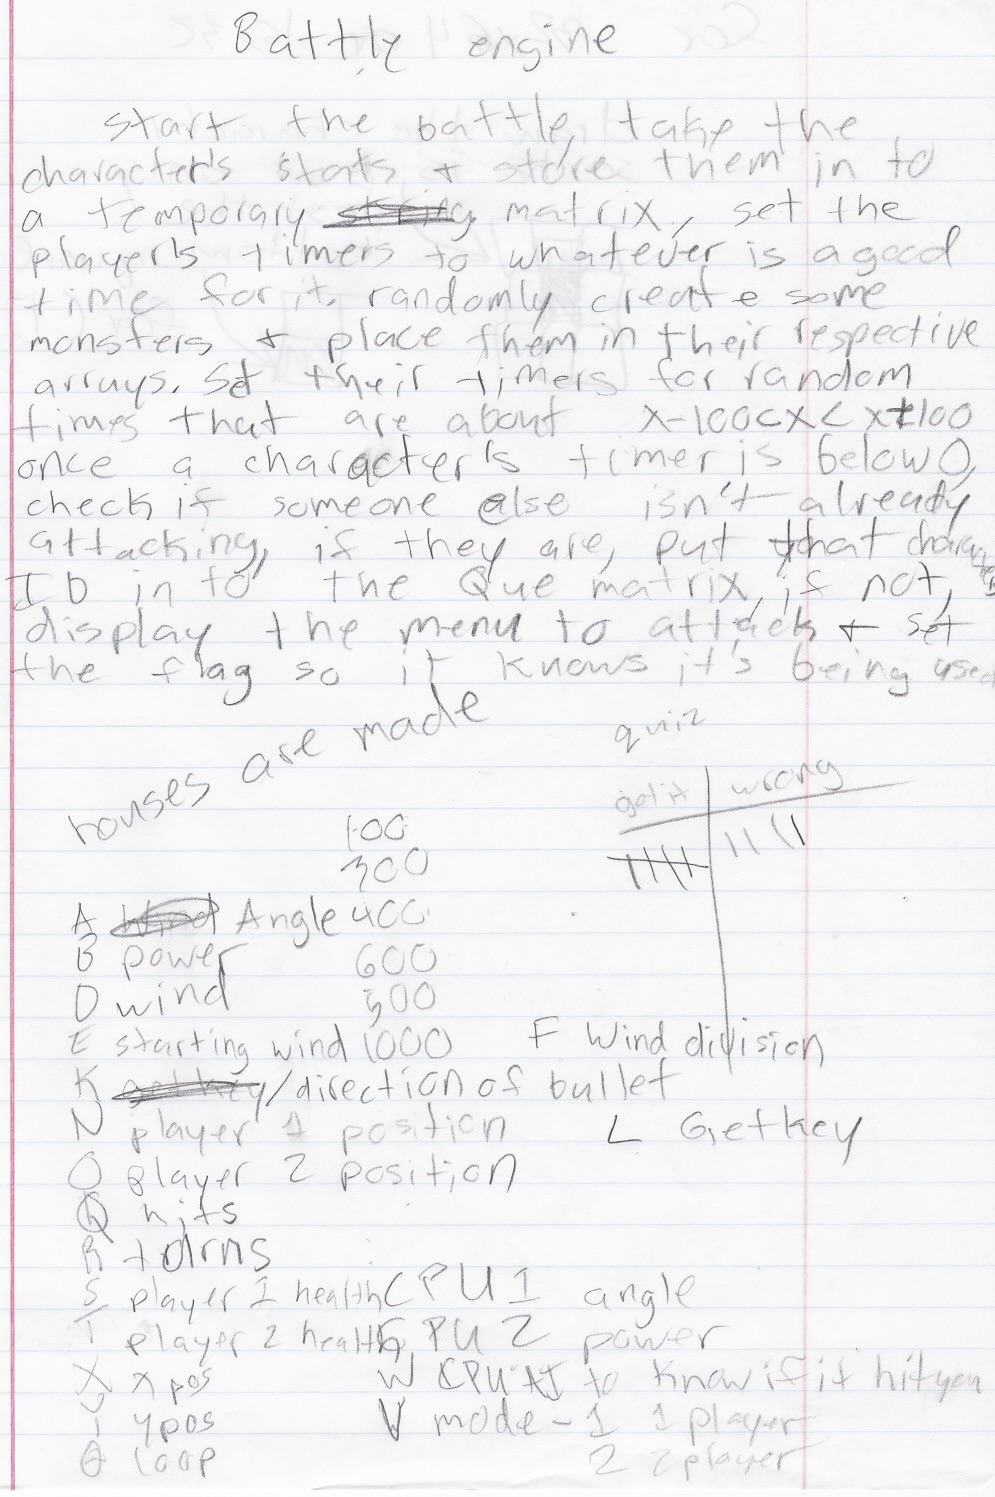 Battle engine
start the battle, take the
character's stats + store them in to
a temporary string matrix, set the
player's timers to whatever is a good
time for it. randomly create some
monsters + place them in their respective
arrays. Set their timers for random
times that are about X-100<X<X+100
once a character's timer is below 0,
check if someone else isn't already
attacking, if they are, put that characters
ID in to the Que matrix, if not,
display the menu to attack + set
the flag so it knows it's being used
houses are made
quiz
got it wrong
100
300
A Wind Angle 400
B power 600
D wind 500
E starting wind 1000 F Wind division
K getkey/direction of bullet
N player 1 position L Getkey
O player 2 position
Q hits
R turns
S player 1 health CPU 1 angle
T player 2 health G CPU 2 power
X x pos W CPU AI to know if it hit you
Y y pos V mode - 1 1 player
θ loop 2 2 player